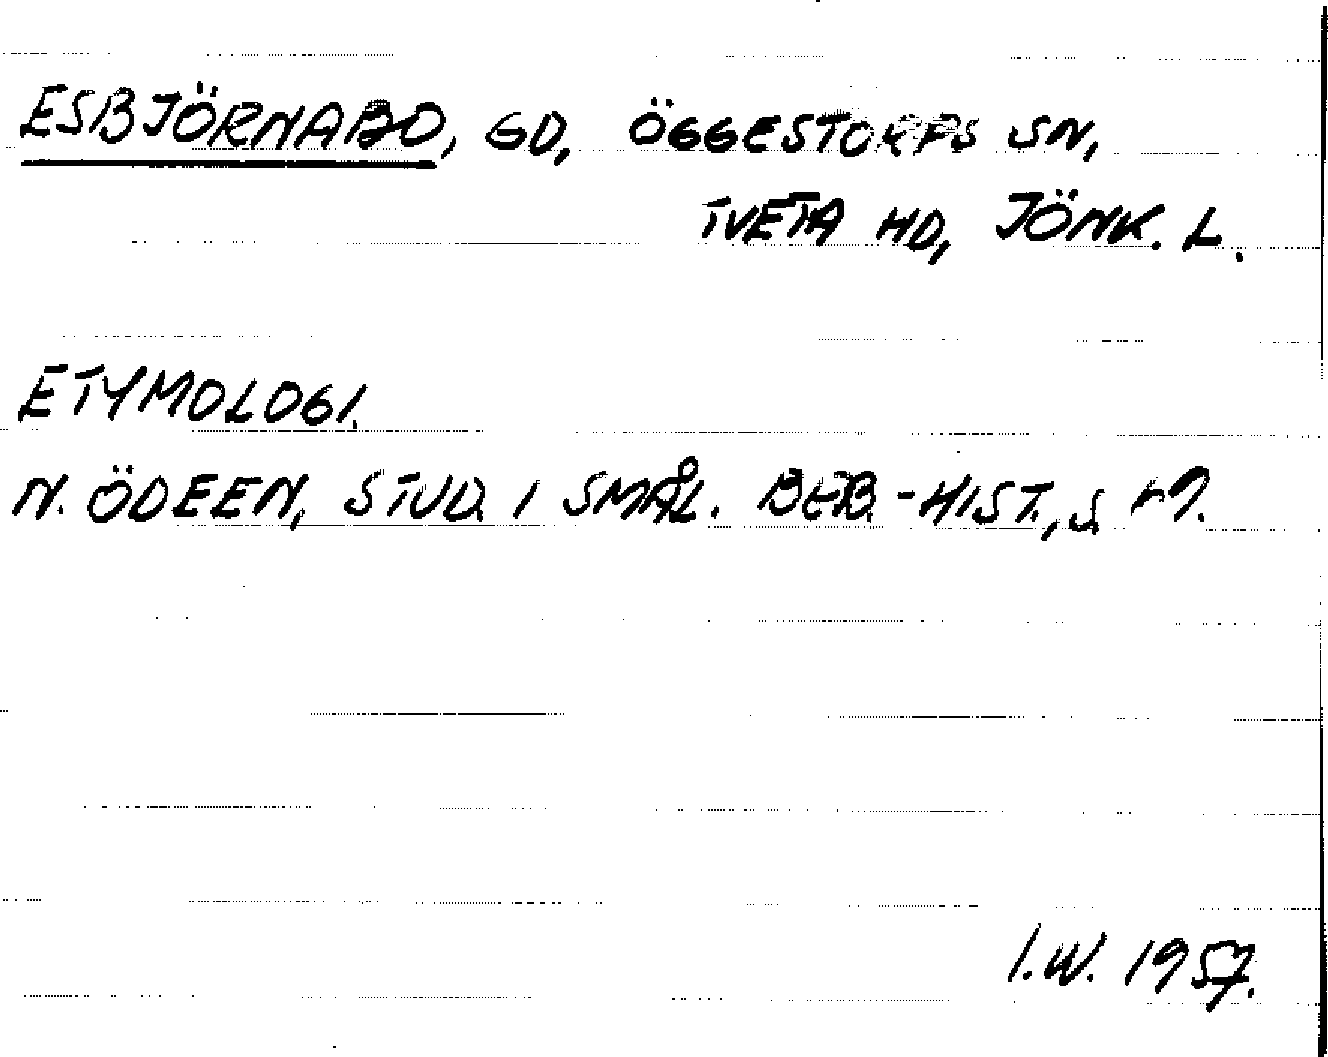 ESBJÖRNABO, GD, ÖGGESTORPS SN,
TVETA HD, JÖNK. L.
ETYMOLOGI.
N. ÖDEEN, STUD. I SMÅL. BEB.-HIST., S.
I.W. 1957.